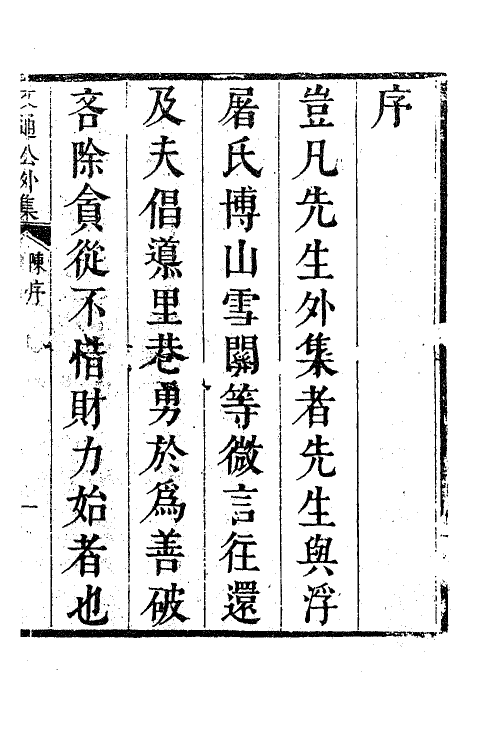 序
豈凡先生外集者先生與浮
屠氏博山雪關等微言往還
及夫倡導里巷勇於為善破
吝除貪從不惜財力始者也
文通公外集
陳序
一